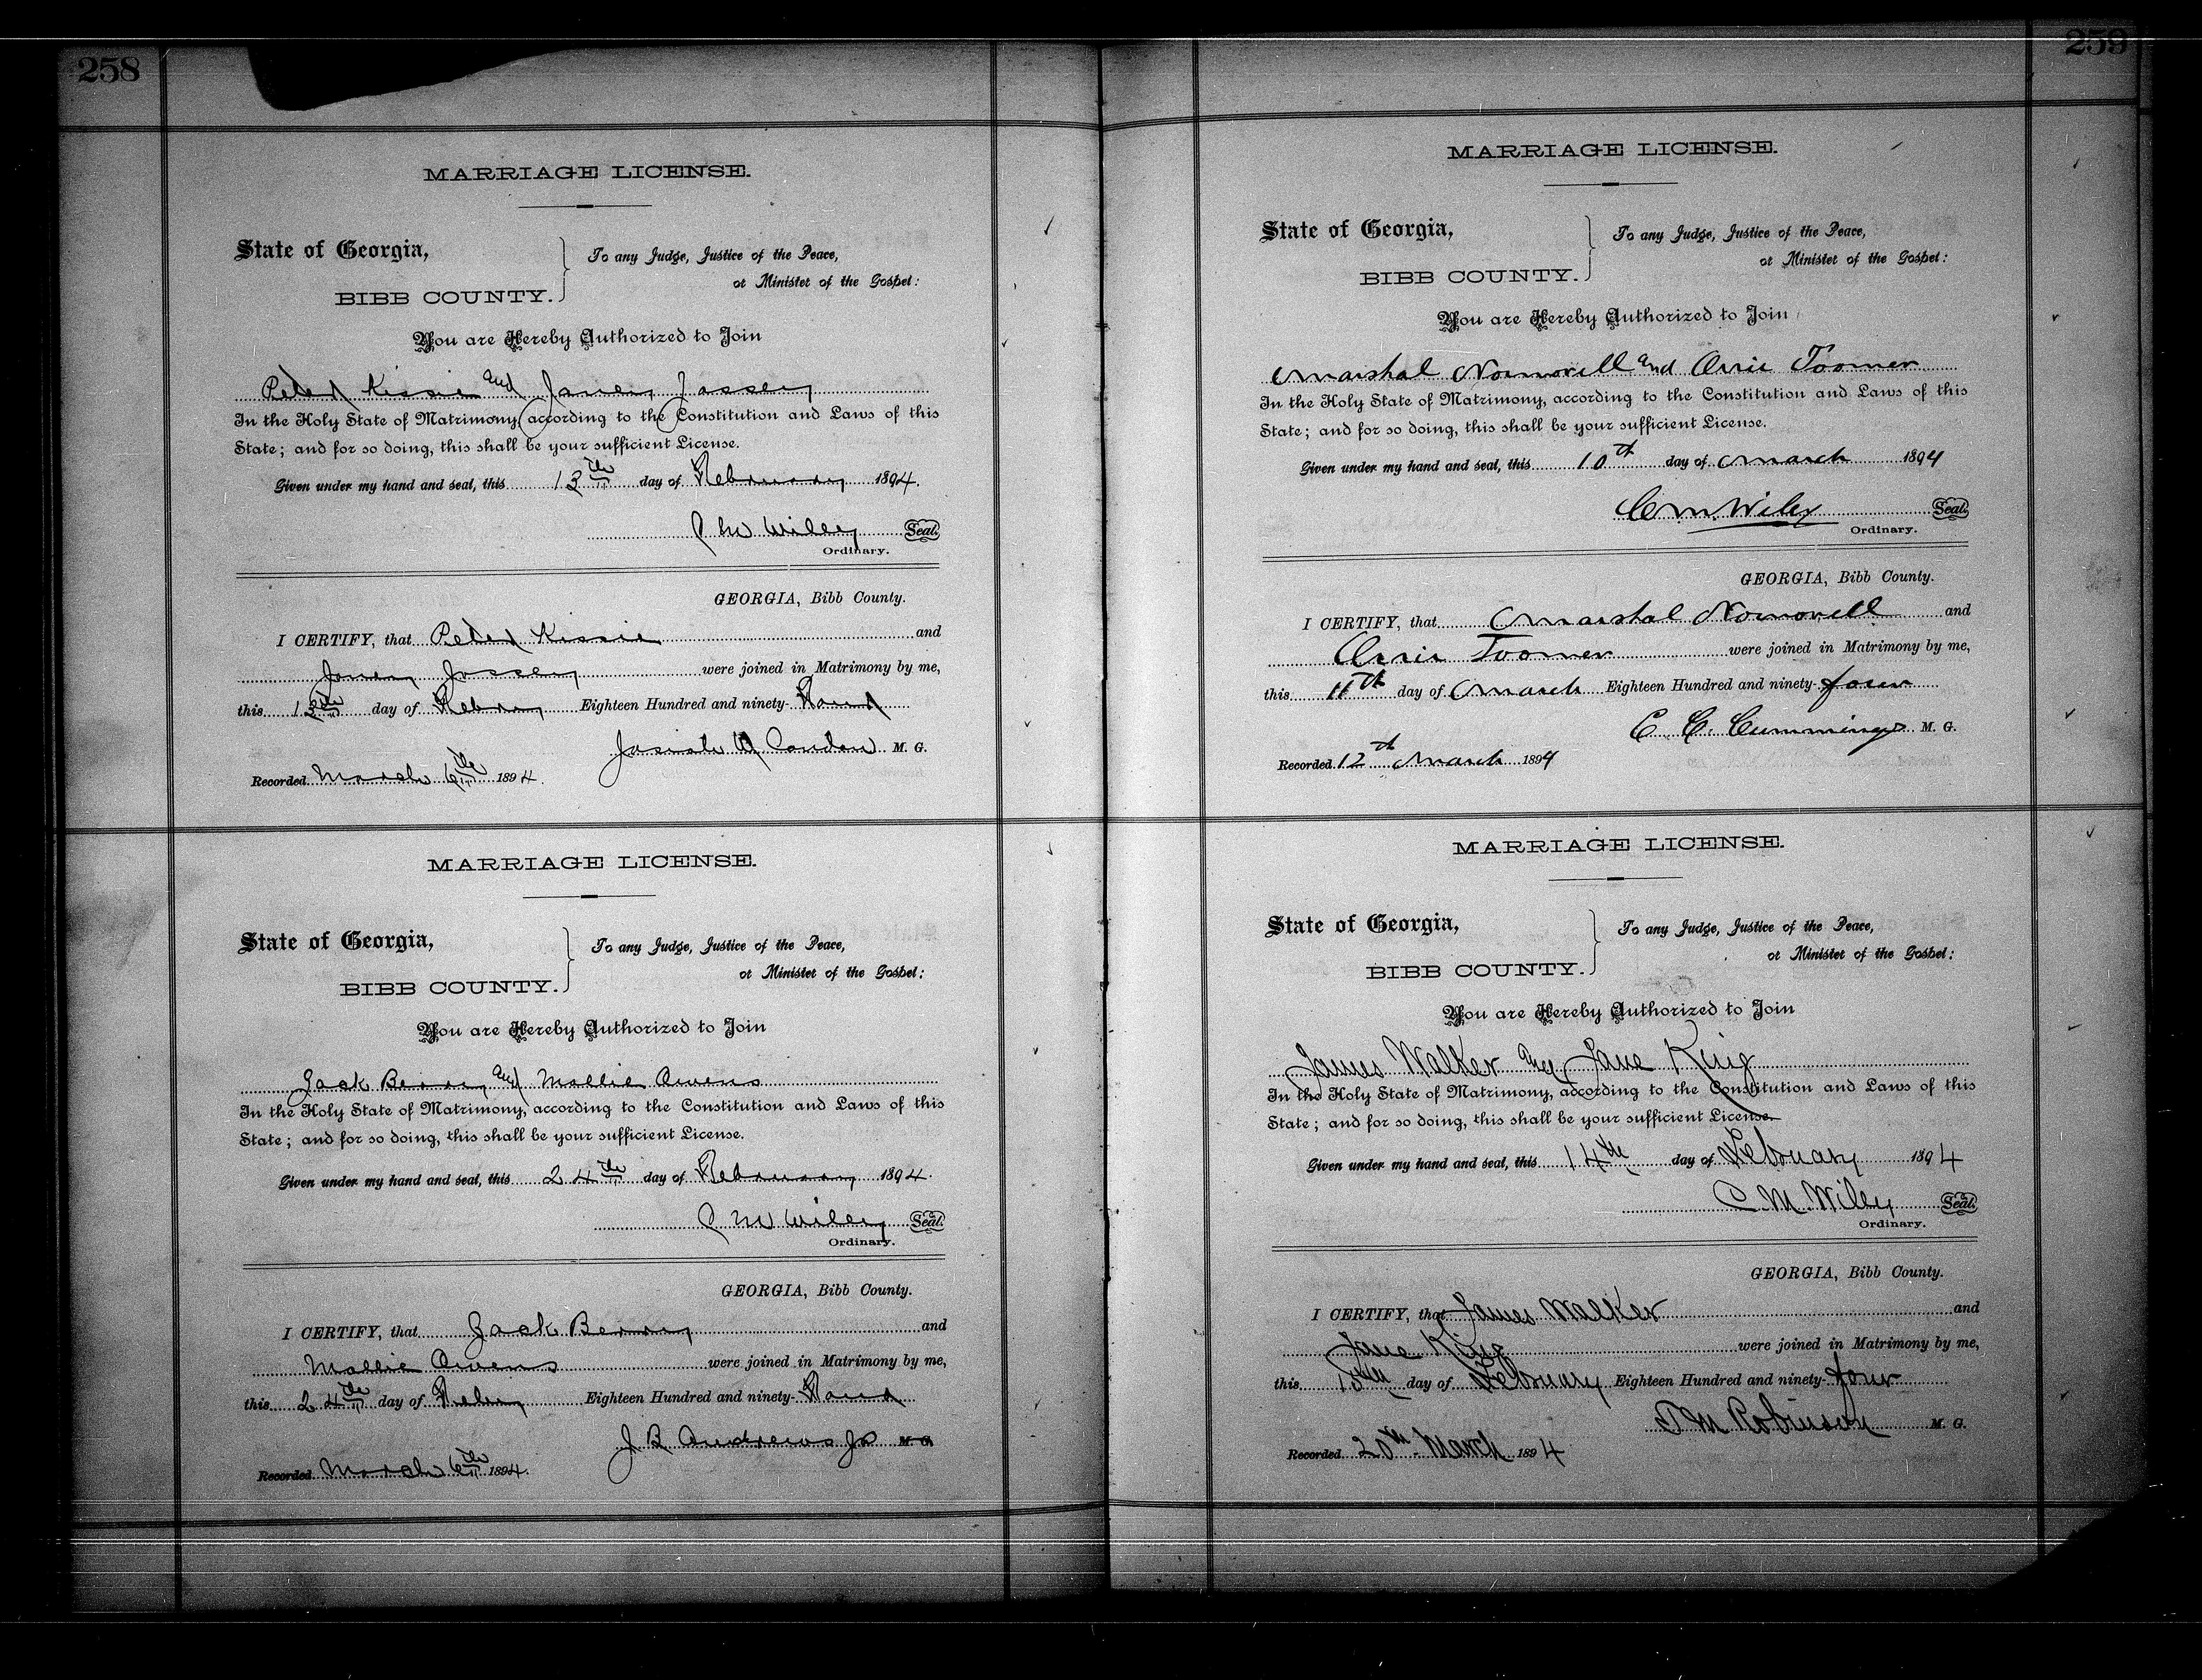 258
MARRIAGE LICENSE.
State of Georgia,
BIBB COUNTY.
To any Judge, Justice of the Peace,
or Minister of the Gospel:
You are Hereby Authorized to Join
Peter Kissie and Janey Jossey
In the Holy State of Matrimony, according to the Constitution and Laws of this
State; and for so doing, this shall be your sufficient License.
Given under my hand and seal, this 13th day of February 1894.
C M Wiley Seal.
Ordinary.
GEORGIA, Bibb County.
I CERTIFY, that Peter Kissie and
Janey Jossey were joined in Matrimony by me,
this 13th day of Febry Eighteen Hundred and ninety-Four
Josiah Q M. G.
Recorded March 6th 1894.
MARRIAGE LICENSE.
State of Georgia,
BIBB COUNTY.
To any Judge, Justice of the Peace,
or Minister of the Gospel:
You are Hereby Authorized to Join
Jack Berry and Mollie Owens
In the Holy State of Matrimony, according to the Constitution and Laws of this
State; and for so doing, this shall be your sufficient License.
Given under my hand and seal, this 24th day of February 1894.
C M Wiley Seal.
Ordinary.
GEORGIA, Bibb County.
I CERTIFY, that Jack Berry and
Mollie Owens were joined in Matrimony by me,
this 24th day of Febry Eighteen Hundred and ninety-Four
J. R. Andrews M. G.
Recorded March 6th 1894.
259
MARRIAGE LICENSE.
State of Georgia,
BIBB COUNTY.
To any Judge, Justice of the Peace,
or Minister of the Gospel:
You are Hereby Authorized to Join
Marshal and Orrie Toomer
In the Holy State of Matrimony, according to the Constitution and Laws of this
State; and for so doing, this shall be your sufficient License.
Given under my hand and seal, this 10th day of March 1894
C. M. Wiley Seal.
Ordinary.
GEORGIA, Bibb County.
I CERTIFY, that Marshal and
Orrie Toomer were joined in Matrimony by me,
this 11th day of March Eighteen Hundred and ninety-four
C. C. Cummings M. G.
Recorded 12th March 1894
MARRIAGE LICENSE.
State of Georgia,
BIBB COUNTY.
To any Judge, Justice of the Peace,
or Minister of the Gospel:
You are Hereby Authorized to Join
James Walker and Jane King
In the Holy State of Matrimony, according to the Constitution and Laws of this
State; and for so doing, this shall be your sufficient License.
Given under my hand and seal, this 14th day of February 1894
C. M. Wiley Seal.
Ordinary.
GEORGIA, Bibb County.
I CERTIFY, that James Walker and
Jane King were joined in Matrimony by me,
this day of February Eighteen Hundred and ninety-four
M Robinson M. G.
Recorded 20th March 1894